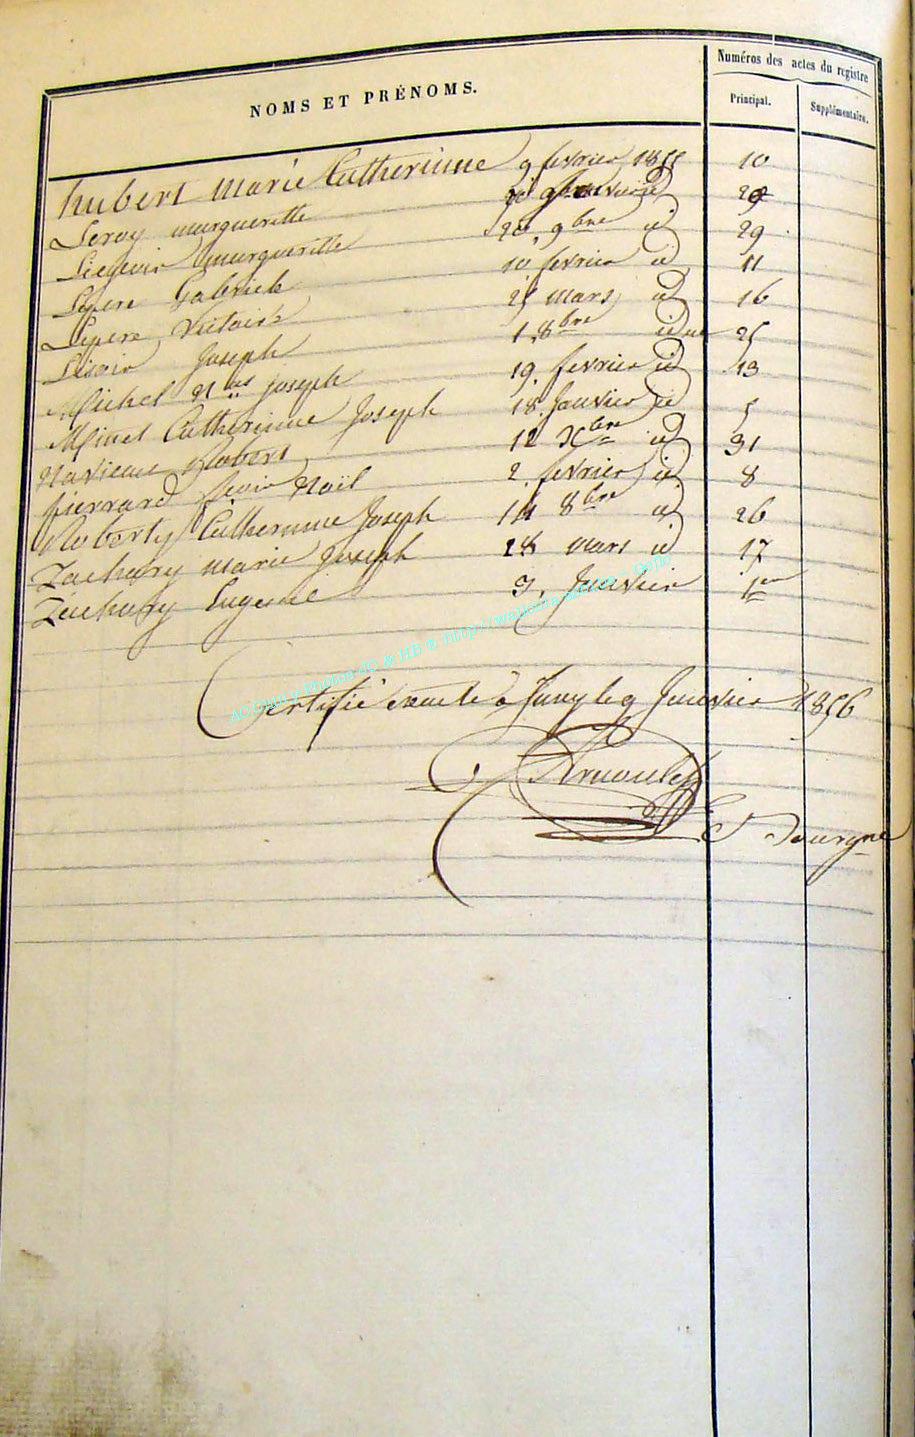 Numéros des actes du registre
NOMS ET PRÉNOMS.
Principal. Supplémentaire.
hubert Marie Catherinne 9 fevrier 1855 10
Leroy margueritte 20 id
Liegeois margueritte 20. 9bre id 29
Lepere Gabriele 10 fevrier id 11
Lepere Victoire 25 mars id 16
Lisoir Joseph 1. 8bre idem 25
Michel Nas joseph 19. fevrier id 13
Minet Catherinne Joseph 18. Janvier id 5
Navieaux Robert 12 Xbre id 31
pierrard Noël 2. fevrier id 8
Roberty Catherinne Joseph 14 8bre id 26
Zachary marie Joseph 28 mars id 17
Zachary Eugenie 3. Janvier 1er
Certifié exacte à le 9 Janvier 1856
Arnould